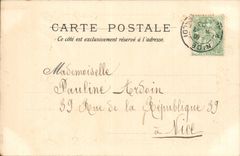 CARTE POSTALE
Ce côté est exclusivement réservé à l'adresse.
Mademoiselle
Pauline Ardoin
39 Rue de la République 39
à Nice